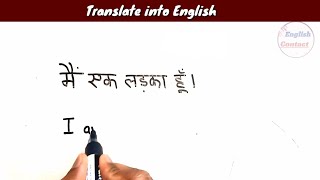 Translate into English
English
Connect
मैं एक लड़का हूँ!
I a